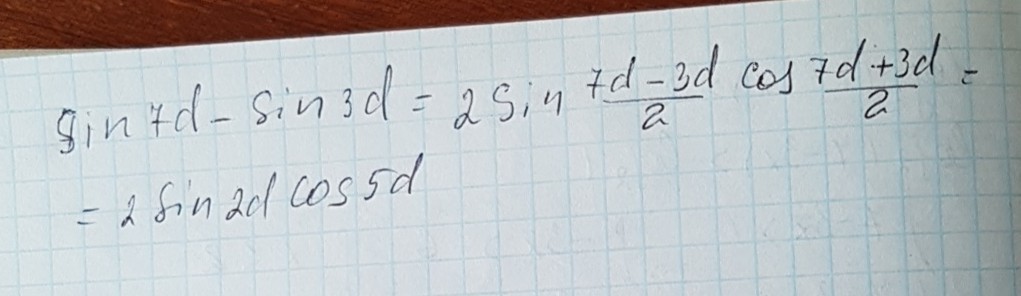 sin7d - sin3d = 2 sin (7d - 3d)/2 cos (7d + 3d)/2 =
= 2 sin 2d cos 5d